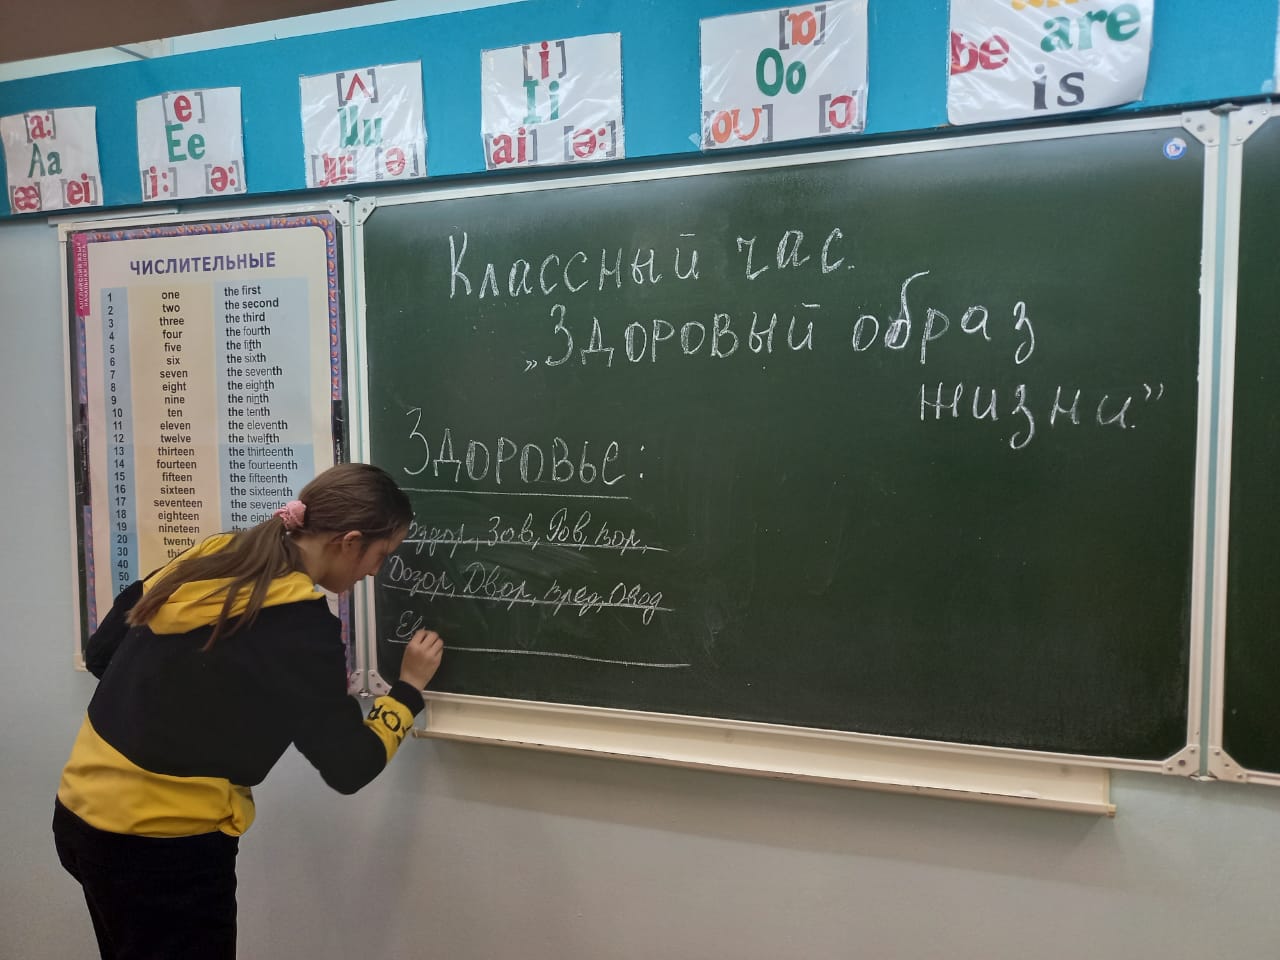 [a:]
Aa
[æ] [ei]
[e]
Ee
[i:] [ə:]
[ʌ]
Uu
[ju:] [ə]
[i]
Ii
[ai] [ə:]
[ɒ]
Oo
[oʊ] [ɔ]
be are
is
АНГЛИЙСКИЙ ЯЗЫК
НАЧАЛЬНАЯ ШКОЛА
ЧИСЛИТЕЛЬНЫЕ
1 one the first
2 two the second
3 three the third
4 four the fourth
5 five the fifth
6 six the sixth
7 seven the seventh
8 eight the eighth
9 nine the ninth
10 ten the tenth
11 eleven the eleventh
12 twelve the twelfth
13 thirteen the thirteenth
14 fourteen the fourteenth
15 fifteen the fifteenth
16 sixteen the sixteenth
17 seventeen the sevente
18 eighteen the eigh
19 nineteen the
20 twenty
30 thi
40
50
Классный час.
„Здоровый образ
жизни.”
Здоровье:
Зов, Ров, вор,
Дозор, Двор, вред, Овод